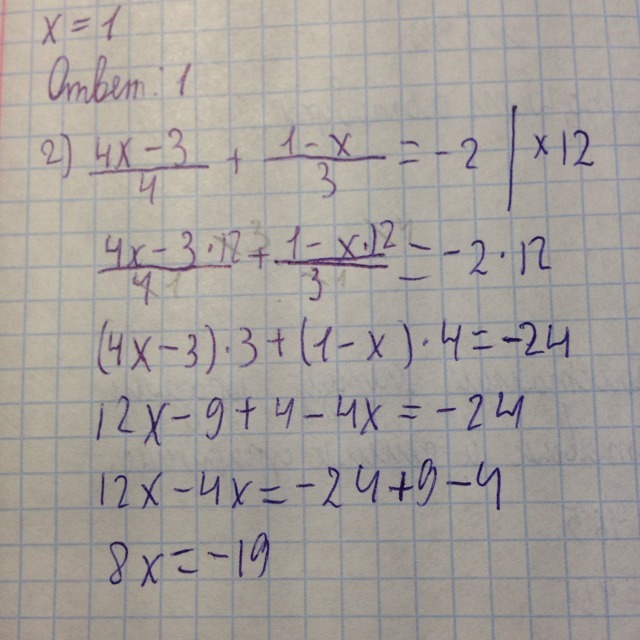 x = 1
Ответ: 1
2) (4x − 3)/4 + (1 − x)/3 = −2 | ×12
(4x − 3 · 12)/4 + (1 − x · 12)/3 = −2 · 12
(4x − 3) · 3 + (1 − x) · 4 = −24
12x − 9 + 4 − 4x = −24
12x − 4x = −24 + 9 − 4
8x = −19